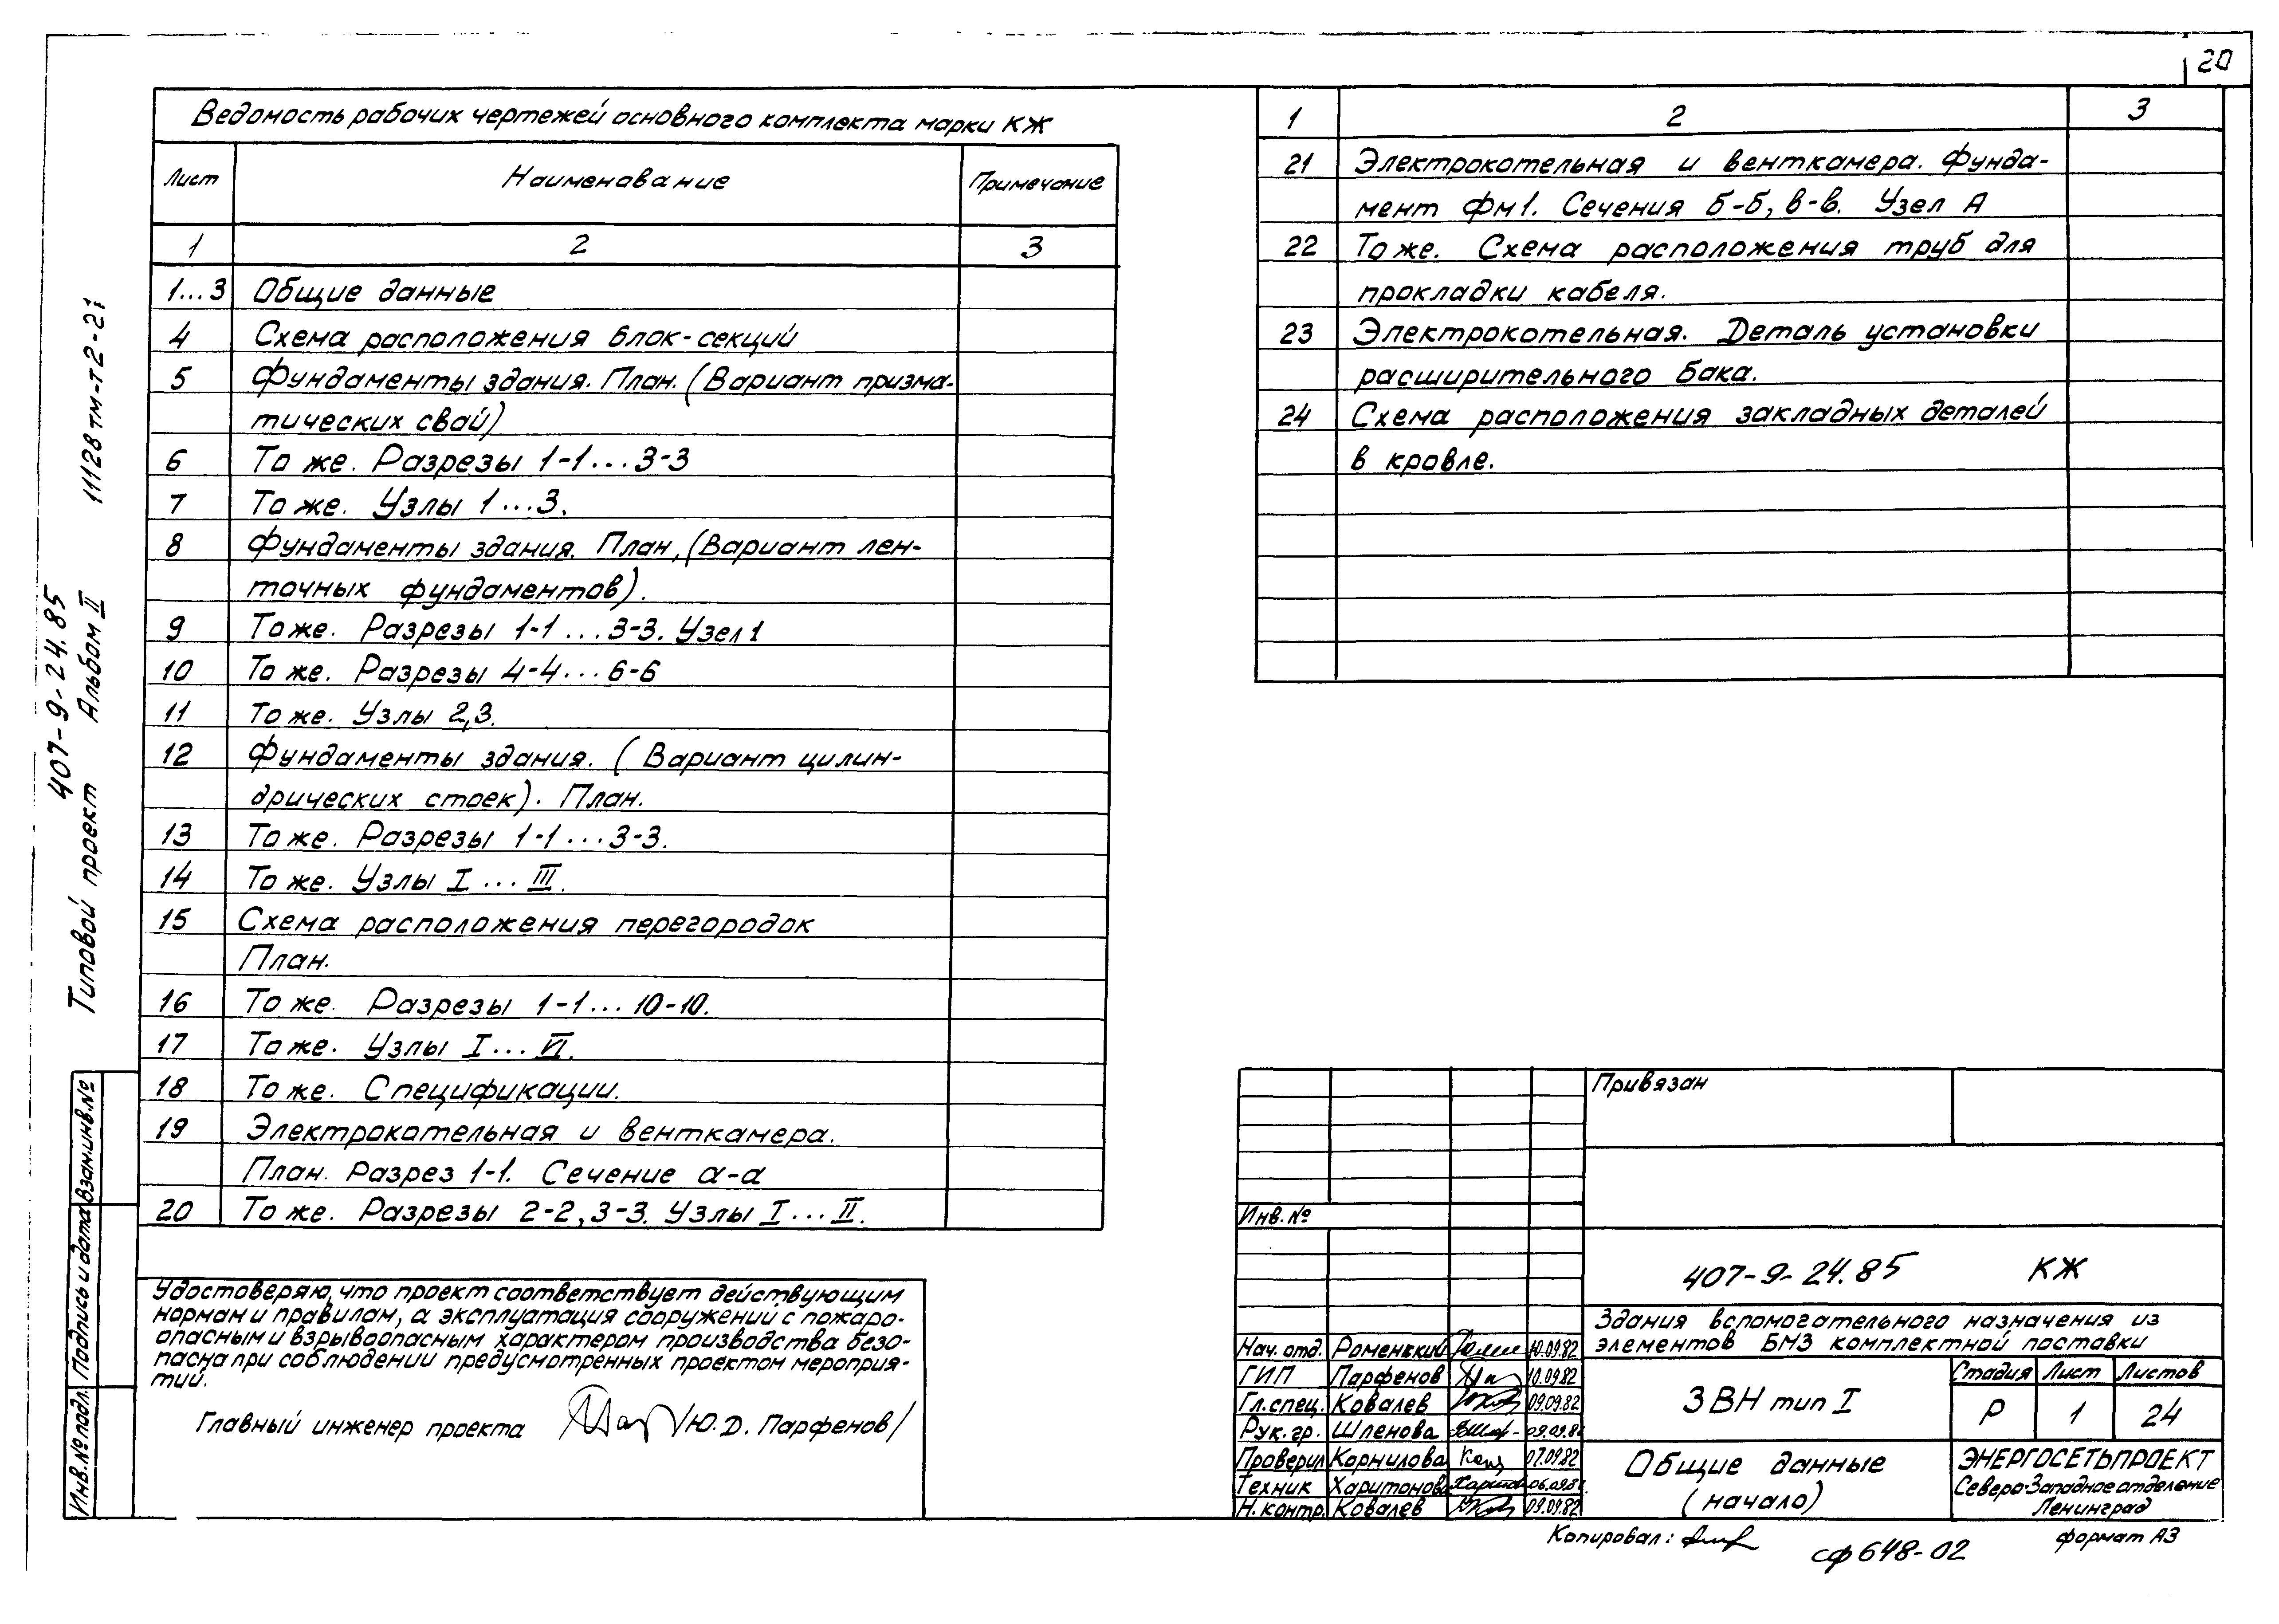 20
Ведомость рабочих чертежей основного комплекта марки КЖ
Лист Наименование Примечание
1 2 3
1...3 Общие данные
4 Схема расположения блок-секций
5 Фундаменты здания. План. (Вариант призма-
тических свай)
6 То же. Разрезы 1-1...3-3
7 То же. Узлы 1...3.
8 Фундаменты здания. План, (Вариант лен-
точных фундаментов).
9 То же. Разрезы 1-1...3-3. Узел 1
10 То же. Разрезы 4-4...6-6
11 То же. Узлы 2,3.
12 Фундаменты здания. (Вариант цилин-
дрических стоек). План.
13 То же. Разрезы 1-1...3-3.
14 То же. Узлы I...III.
15 Схема расположения перегородок
План.
16 То же. Разрезы 1-1...10-10.
17 То же. Узлы I...VI.
18 То же. Спецификации.
19 Электрокотельная и венткамера.
План. Разрез 1-1. Сечение а-а
20 То же. Разрезы 2-2, 3-3. Узлы I...II.
1 2 3
21 Электрокотельная и венткамера. Фунда-
мент Фм1. Сечения б-б, в-в. Узел А
22 То же. Схема расположения труб для
прокладки кабеля.
23 Электрокотельная. Деталь установки
расширительного бака.
24 Схема расположения закладных деталей
в кровле.
407-9-24.85
Типовой проект Альбом II 11128тм-т2-21
Инв.№ подл. Подпись и дата Взам.инв.№
Удостоверяю, что проект соответствует действующим
нормам и правилам, а эксплуатация сооружений с пожаро-
опасным и взрывоопасным характером производства безо-
пасна при соблюдении предусмотренных проектом мероприя-
тий.
Главный инженер проекта /Ю.Д. Парфенов/
Привязан
Инв.№
407-9-24.85 КЖ
Здания вспомогательного назначения из
элементов БМЗ комплектной поставки
Нач. отд. Роменский 10.09.82
ГИП Парфенов 10.09.82
Гл.спец. Ковалев 09.09.82
Рук.гр. Шленова 09.09.82
Проверил Корнилова 07.09.82
Техник Харитонова 06.09.82
Н.контр. Ковалев 09.09.82
ЗВН тип I
Стадия Лист Листов
Р 1 24
Общие данные
(начало)
ЭНЕРГОСЕТЬПРОЕКТ
Северо-Западное отделение
Ленинград
Копировал: формат А3
сф 648-02